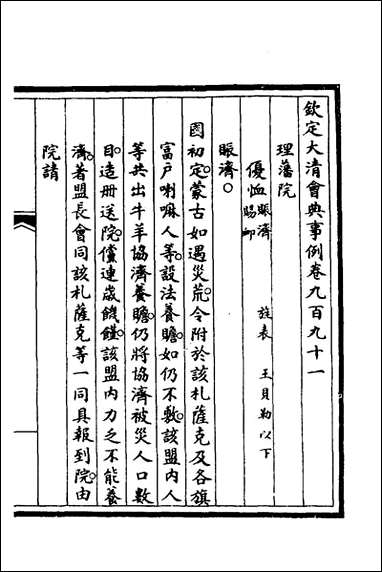 欽定大清會典事例卷九百九十一
理藩院
優恤 賑濟 旌表 王貝勒以下
賜卹
賑濟○
國初定。蒙古如遇災荒。令附於該札薩克及各旗
富戶喇嘛人等。設法養贍。如仍不敷。該盟內人
等共出牛羊協濟養贍。仍將協濟被災人口數
目。造册送院。儻連歲饑饉。該盟內力乏不能養
濟。著盟長會同該札薩克等一同具報到院。由
院請